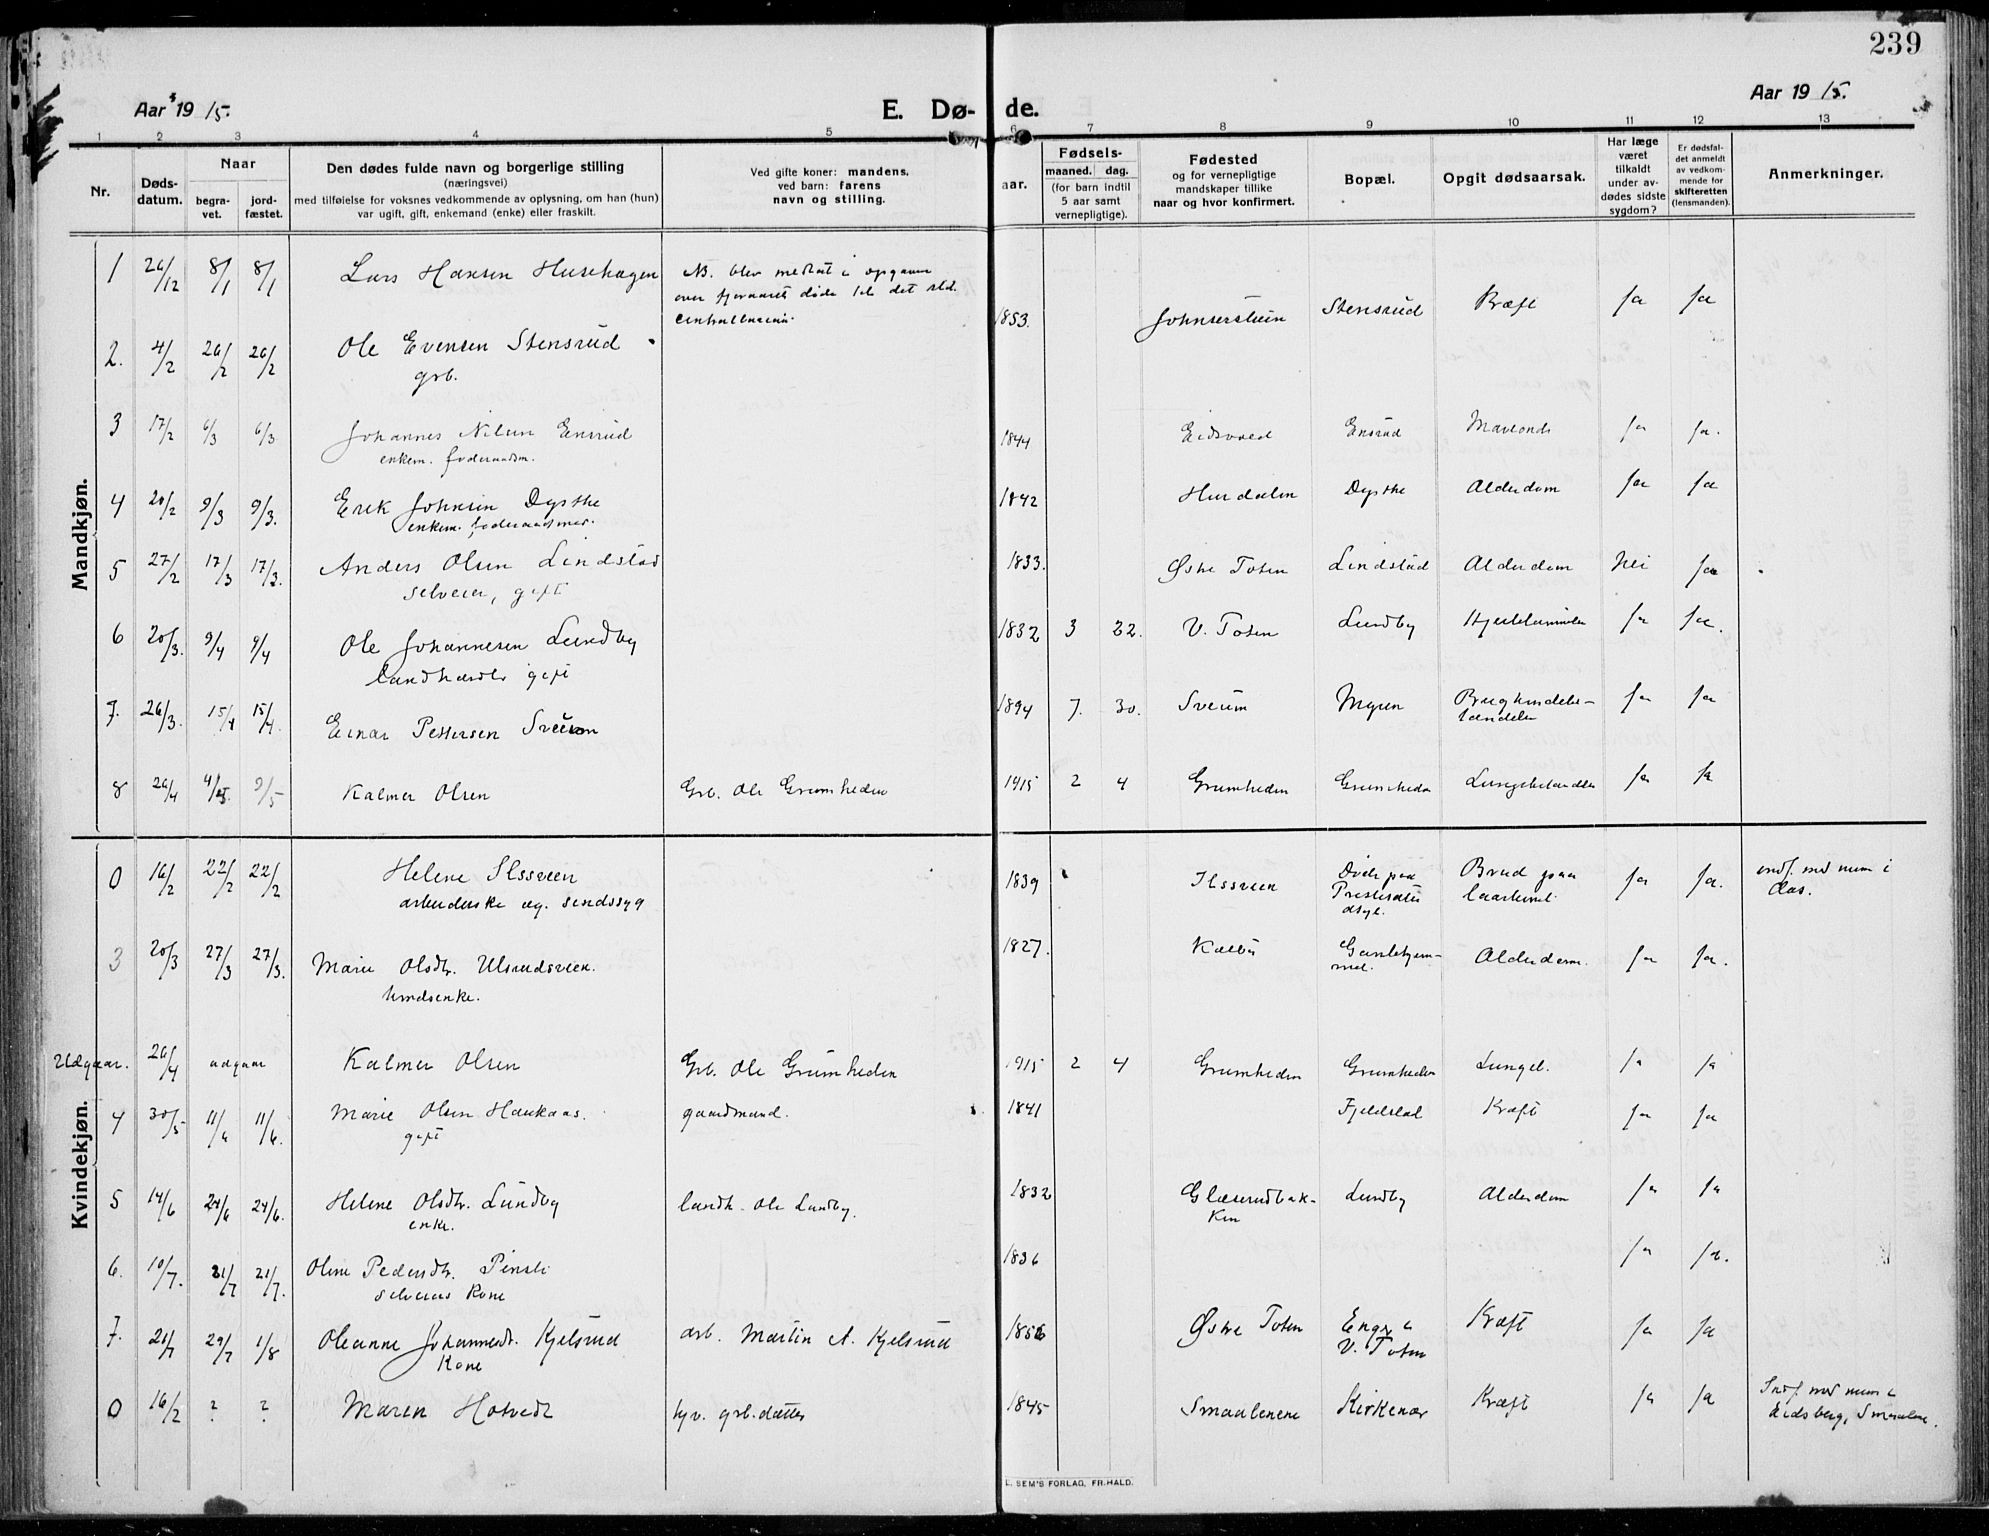 239
Aar 1915.
E. Dø-
de.
Aar 1915.
1 2 3 4 5 6 7 8 9 10 11 12 13
Nr.
Døds-
datum.
Naar
begra-
vet.
jord-
fæstet.
Den dødes fulde navn og borgerlige stilling
(næringsvei)
med tilføielse for voksnes vedkommende av oplysning, om han (hun)
var ugift, gift, enkemand (enke) eller fraskilt.
Ved gifte koner: mandens,
ved barn: farens
navn og stilling.
aar.
Fødsels-
maaned. dag.
(for barn indtil
5 aar samt
vernepligtige).
Fødested
og for vernepligtige
mandskaper tillike
naar og hvor konfirmert.
Bopæl.
Opgit dødsaarsak.
Har læge
været
tilkaldt
under av-
dødes sidste
sygdom?
Er dødsfal-
det anmeldt
av vedkom-
mende for
skifteretten
(lensmanden).
Anmerkninger.
Mandkjøn.
1 26/12 8/1 8/1 Lars Hansen Husehagen NB. blev medtat i opgaven
over fjoraarets døde til det
2. 4/2 26/2 26/2 Ole Evensen Stensrud 1853. Stensrud Kræft ja ja
grb.
3 17/2 6/3 6/3 Johannes Nilsen Ensrud 1844 Eidsvold Ensrud ja ja.
enkem. føderaadsm.
4 20/2 9/3 9/3. Erik Johnsen Dysthe 1842 Hurdalen Dysthe Alderdom ja ja
enkem. føderaadsmand.
5 27/2 17/3 17/3. Anders Olsen Lindstad 1833. Østre Toten Lindstad Alderdom Nei ja
selveier, gift
6 20/3. 9/4 9/4 Ole Johannesen Lundby 1832 3 22. V. Toten Lundby ja ja.
landhandler gift
7. 26/3. 15/4 15/4. Einar Pettersen Sveum 1894 7. 30. Sveum Myren ja ja
8 26/4 9/5 Kalmer Olsen Grb. Ole Grumheden 1915 2 4 Grumheden Grumheden Lungebetændelse ja ja
Kvindekjøn.
0 16/2 22/2 22/2 Helene Ilssveen 1839 Ilssveen Døde paa Brud paa ja ja. indf. med num i
arbeiderske og. sindssyg Aas.
3 20/3 27/3 27/3. Marie Olsdtr. Ulsrudsveen. 1827. Kolbu Gamlehjem-
met. Alderdom. ja ja.
Udgaar. 26/4 udgaar Kalmer Olsen Grb. Ole Grumheden 1915 2 4 Grumheden Grumheden Lungeb. ja ja
4 30/5 11/6 11/6. Marie Olsen Haukaas. gaardmand. 1841 Fjeldstad Kræft ja ja
gift
5 14/6 24/6 24/6. Helene Olsdtr. Lundby landh. Ole Lundby. 1832 Glæserudbak-
ken Lundby Alderdom ja ja
enke.
6. 10/7. 21/7 21/7. Oline Pedersdtr. 1836 ja ja.
selveiers Kone
7. 21/7 29/7 1/8 Oleanne Johannesdtr. Kjelsrud arb. Martin A. Kjelsrud 1856 Østre Toten Enge i
V. Toten Kræft ja ja
Kone
0 16/2 ? ? Maren Hotvedt grb.datter 1845 Smaalenene Kirkenær Kræft ja ja Indf. med num i
Eidsberg, Smaalene.
SEM'S FORLAG, FR.HALD.